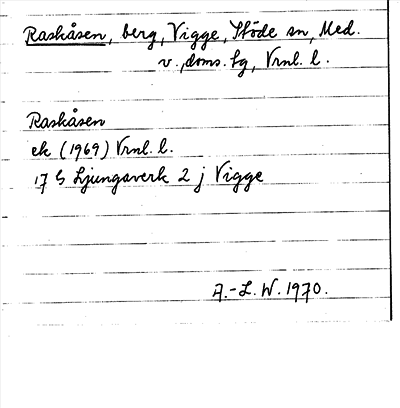 Raskåsen, berg, Vigge, Stöde sn, Med.
v., doms. fg, Vrnl. l.
Raskåsen
ek (1969) Vrnl. l.
17 G Ljungaverk 2 j Vigge
A.-L. W. 1970.